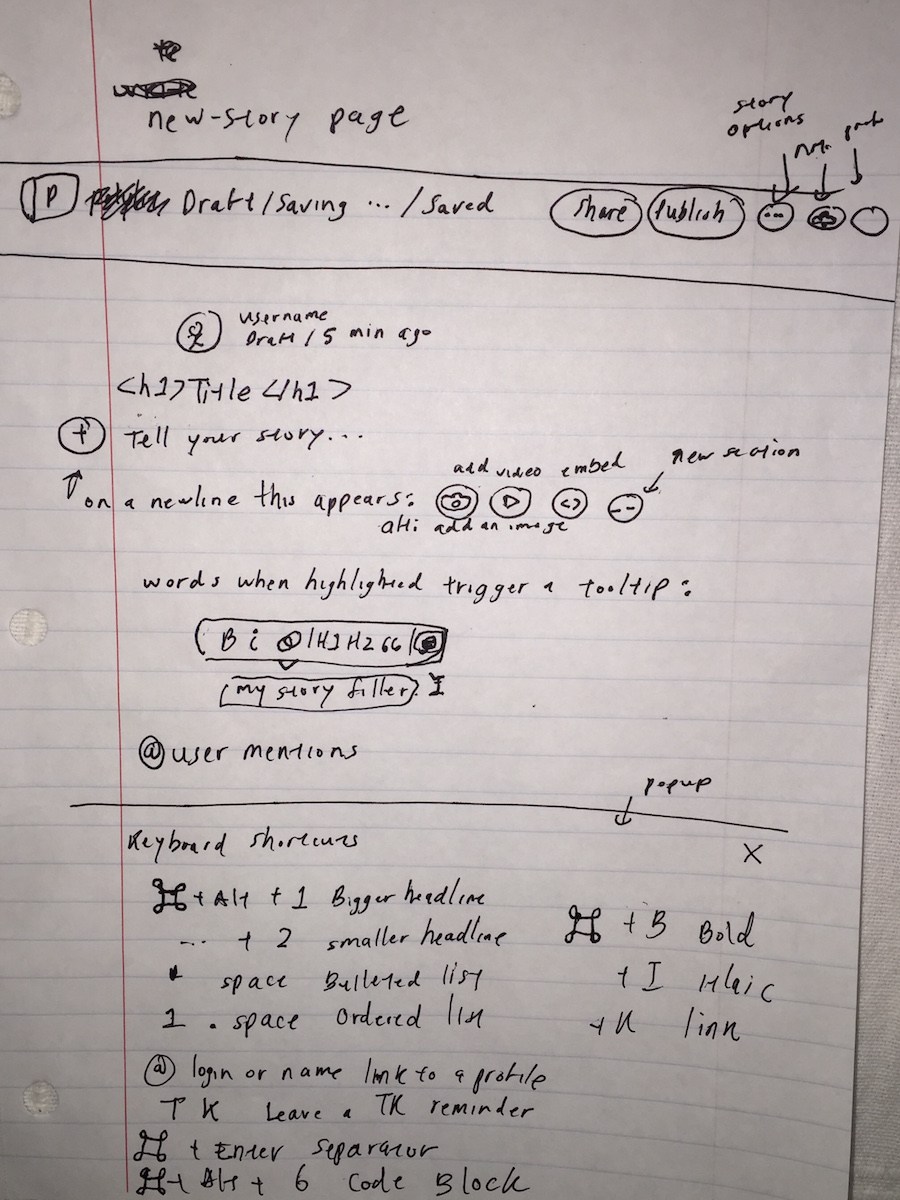 new-story page
story
options
P Draft/Saving ... / Saved share Publish ...
username
Draft / 5 min ago
<h1>Title </h1>
+ Tell your story...
add video embed new section
on a newline this appears: <> --
alt: add an image
words when highlighted trigger a tooltip:
B i | H1 H2 66 |
my story filler
@user mentions
popup
Keyboard shortcuts X
⌘ + Alt + 1 Bigger headline
⌘ + B Bold
... + 2 smaller headline
+ I Italic
* space Bulleted list
+ K link
1 . space Ordered list
@ login or name link to a profile
T K Leave a TK reminder
⌘ + Enter Separator
⌘ + Alt + 6 Code Block